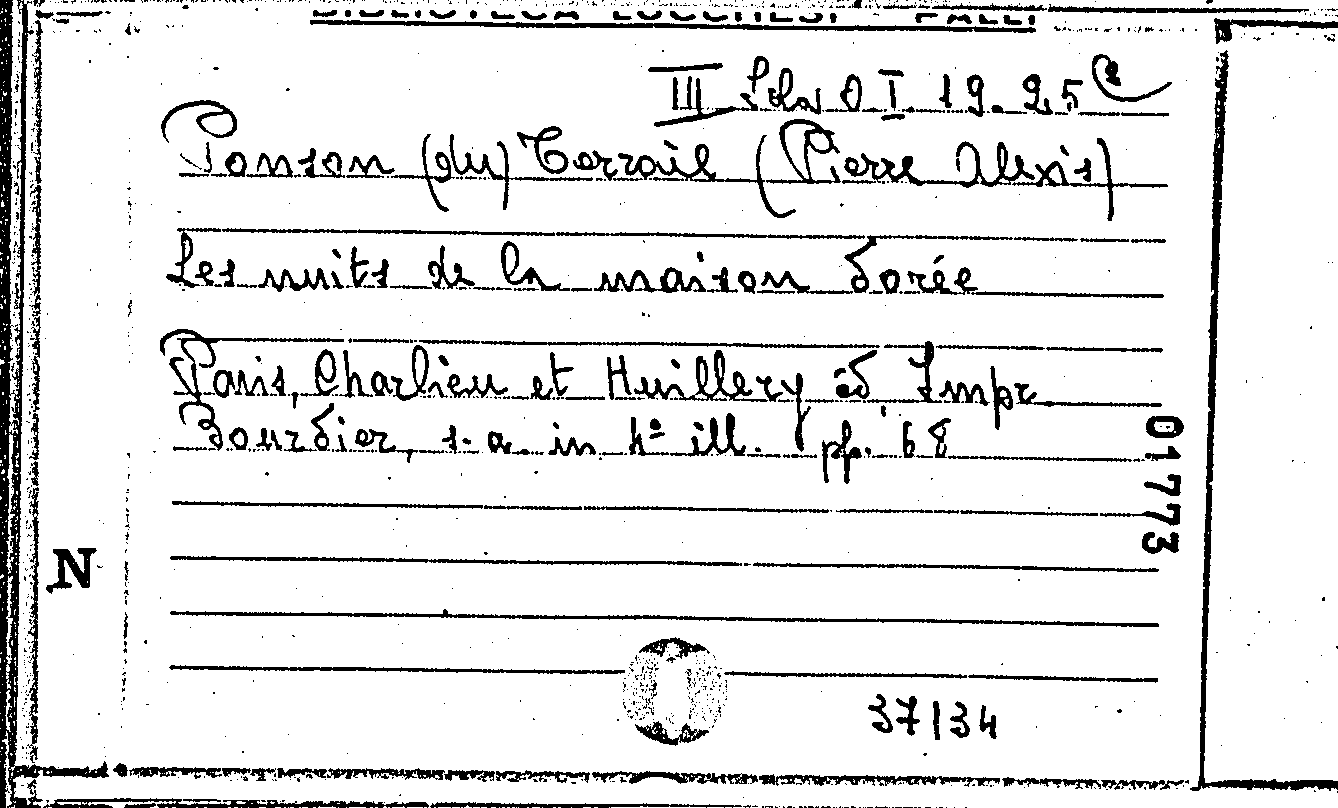 BIBLIOTECA LUCCHESI - PALLI
III Sla O I. 19. 25 e
Ponson (du) Terrail (Pierre Alexis)
Les nuits de la maison dorée
Paris, Charlieu et Huillery éd. Impr.
Bourdier, s. a. in 4º ill. pp. 68
01773
N
37134